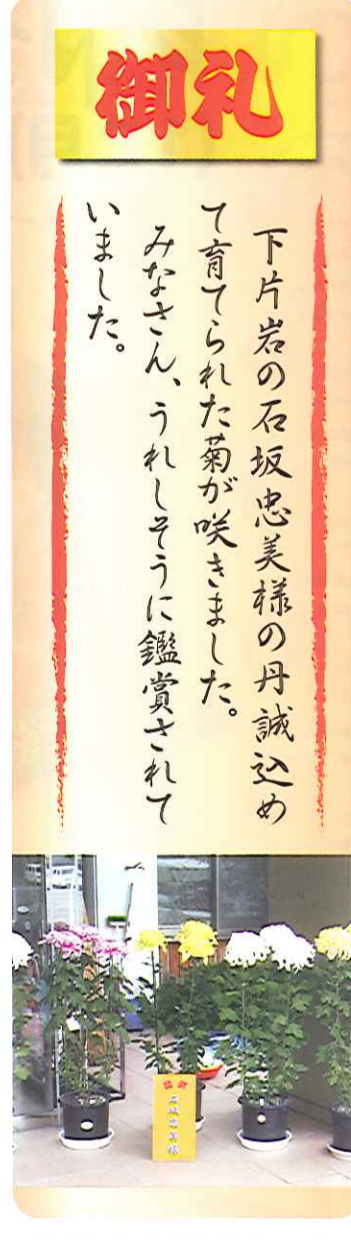 御礼
下片岩の石坂忠美様の丹誠込め
て育てられた菊が咲きました。
みなさん、うれしそうに鑑賞されて
いました。